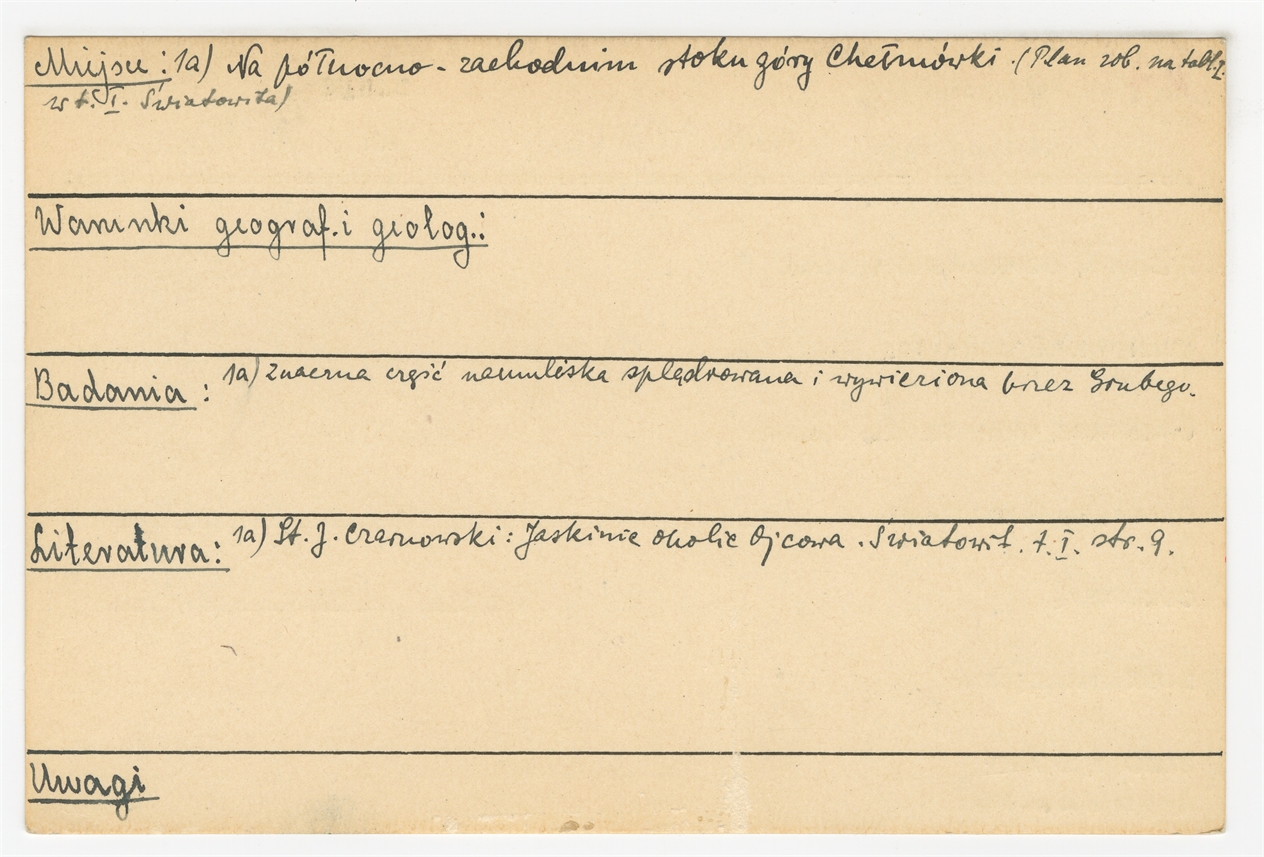 Miejsce: 1a) Na północno-zachodnim stoku góry Chełmówki. (Plan zob. na tabl. I.
w t. I. Światowita)
Warunki geograf. i geolog.:
Badania: 1a) Znaczna część namuliska splądrowana i wywieziona przez Grubego.
Literatura: 1a) St. J. Czarnowski: Jaskinie okolic Ojcowa. Światowit. t. I. str. 9.
Uwagi